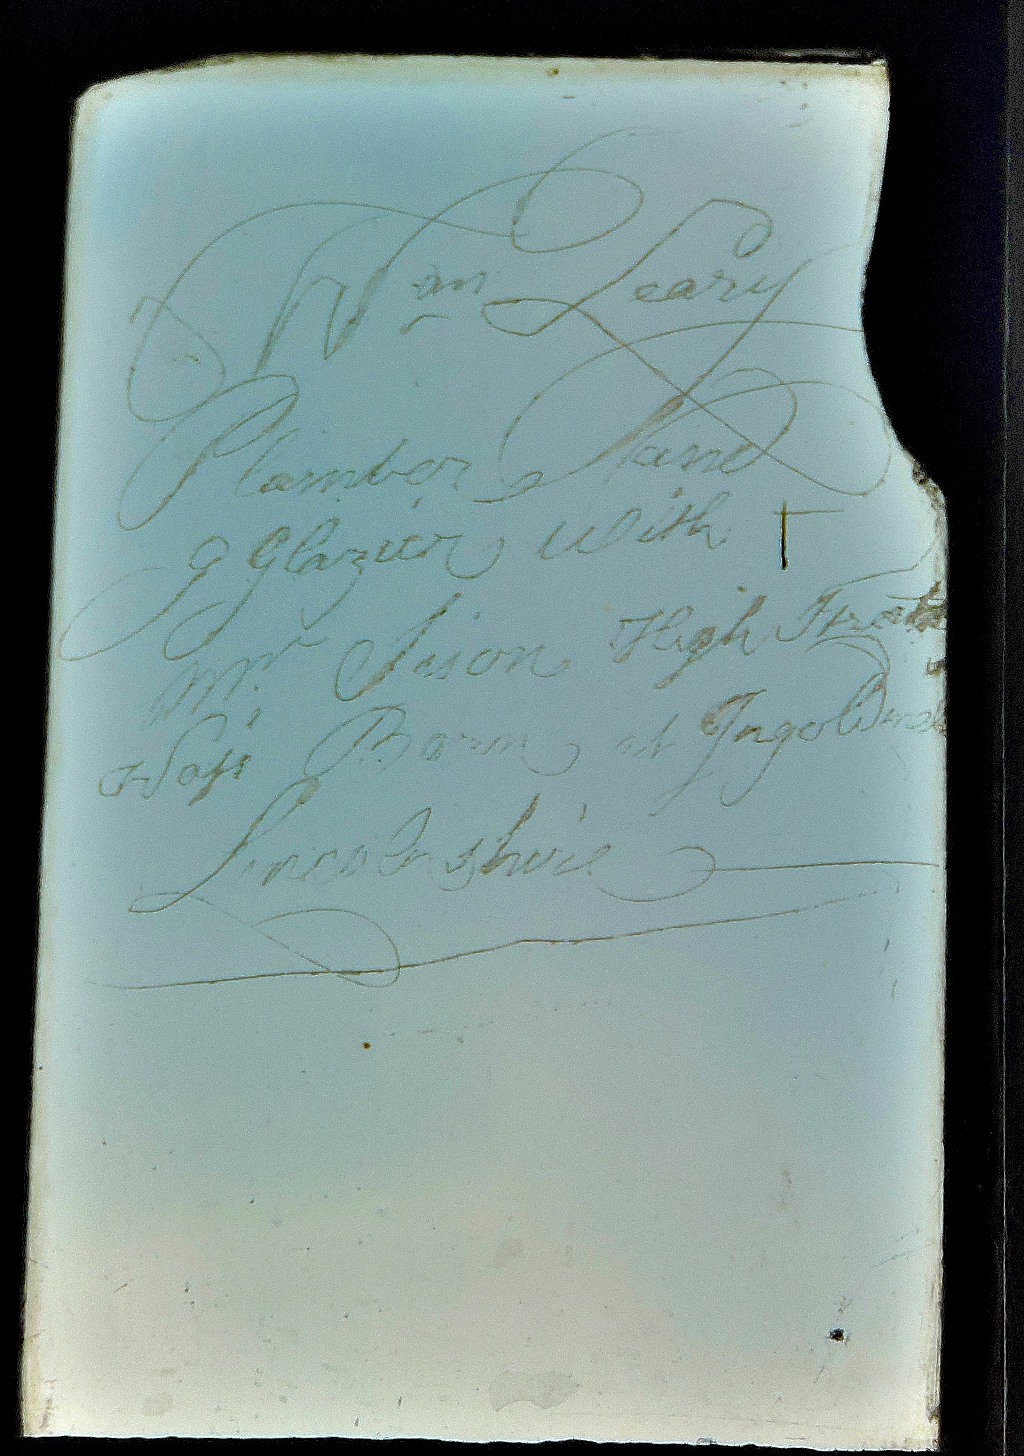 Wm Leary
Plumber
Glazier With
Mr. Sison High
Was Born at Ingoldm
Lincolnshire